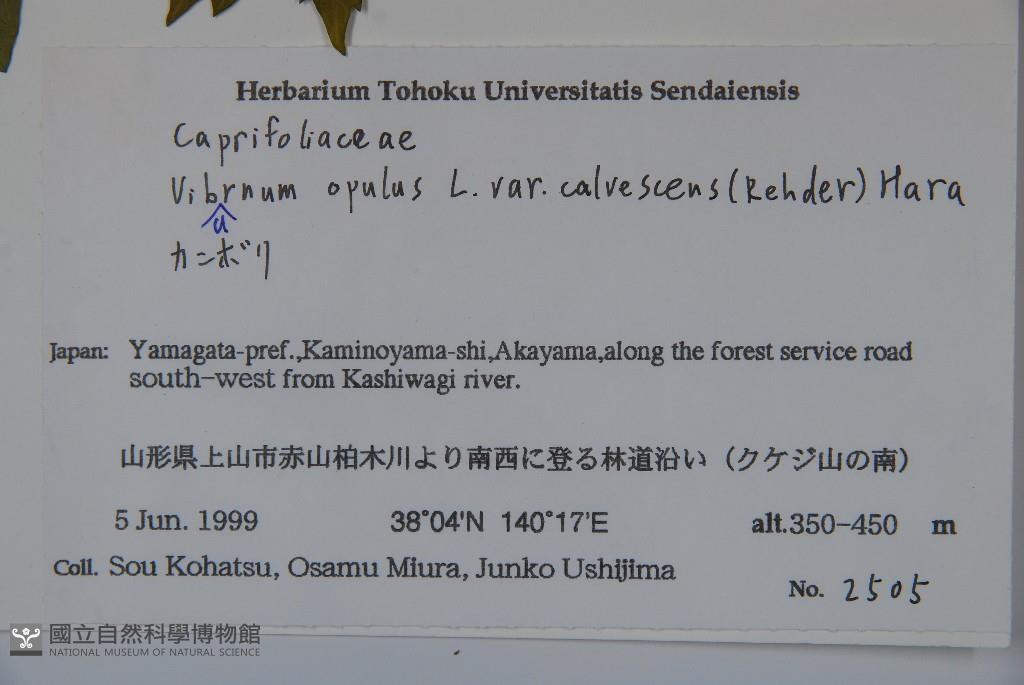 Herbarium Tohoku Universitatis Sendaiensis
Caprifoliaceae
Vibrnum opulus L. var. calvescens (Rehder) Hara
u
カンボリ
Japan: Yamagata-pref.,Kaminoyama-shi,Akayama,along the forest service road
south-west from Kashiwagi river.
山形県上山市赤山柏木川より南西に登る林道沿い（クケジ山の南）
5 Jun. 1999 38°04'N 140°17'E alt.350-450 m
Coll. Sou Kohatsu, Osamu Miura, Junko Ushijima
No. 2505
國立自然科學博物館
NATIONAL MUSEUM OF NATURAL SCIENCE